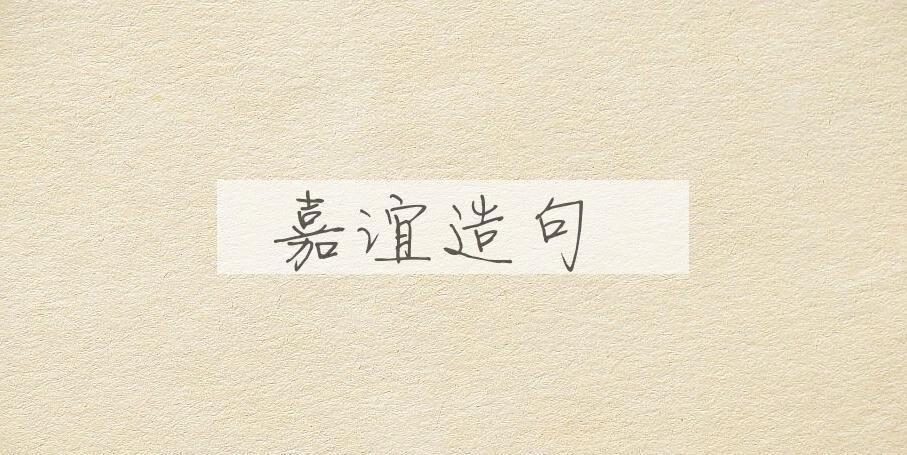 嘉谊造句